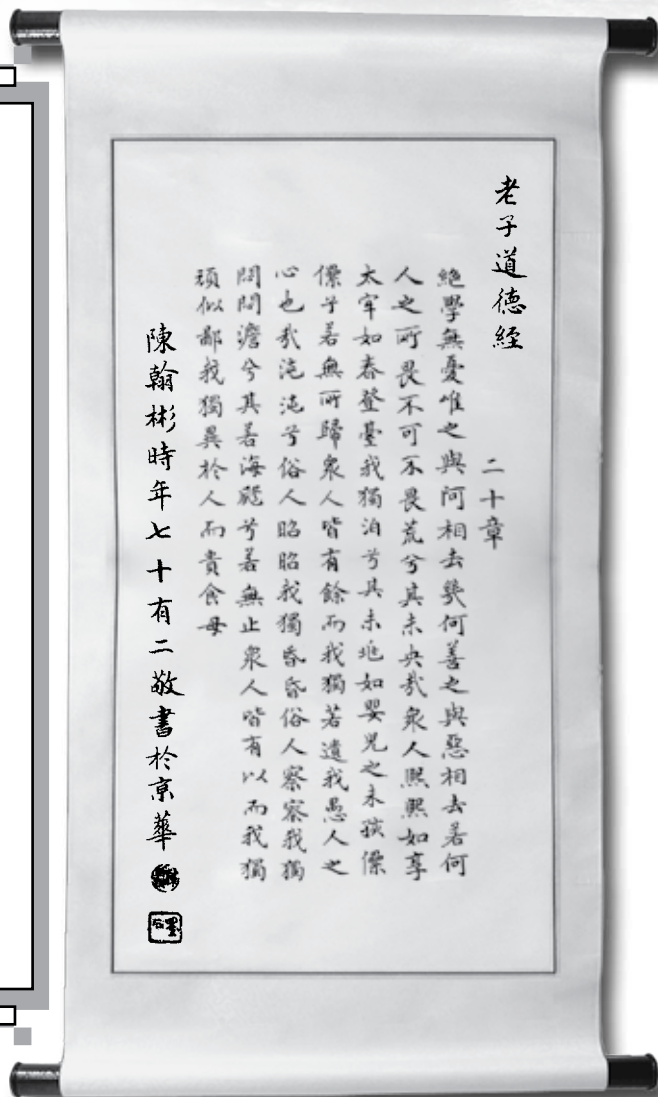 老子道德經
二十章
絕學無憂唯之與阿相去幾何善之與惡相去若何
人之所畏不可不畏荒兮其未央哉衆人熙熙如享
太牢如春登臺我獨泊兮其未兆如嬰兒之未孩傫
傫兮若無所歸衆人皆有餘而我獨若遺我愚人之
心也哉沌沌兮俗人昭昭我獨昏昏俗人察察我獨
悶悶澹兮其若海飂兮若無止衆人皆有以而我獨
頑似鄙我獨異於人而貴食母
陳翰彬時年七十有二敬書於京華